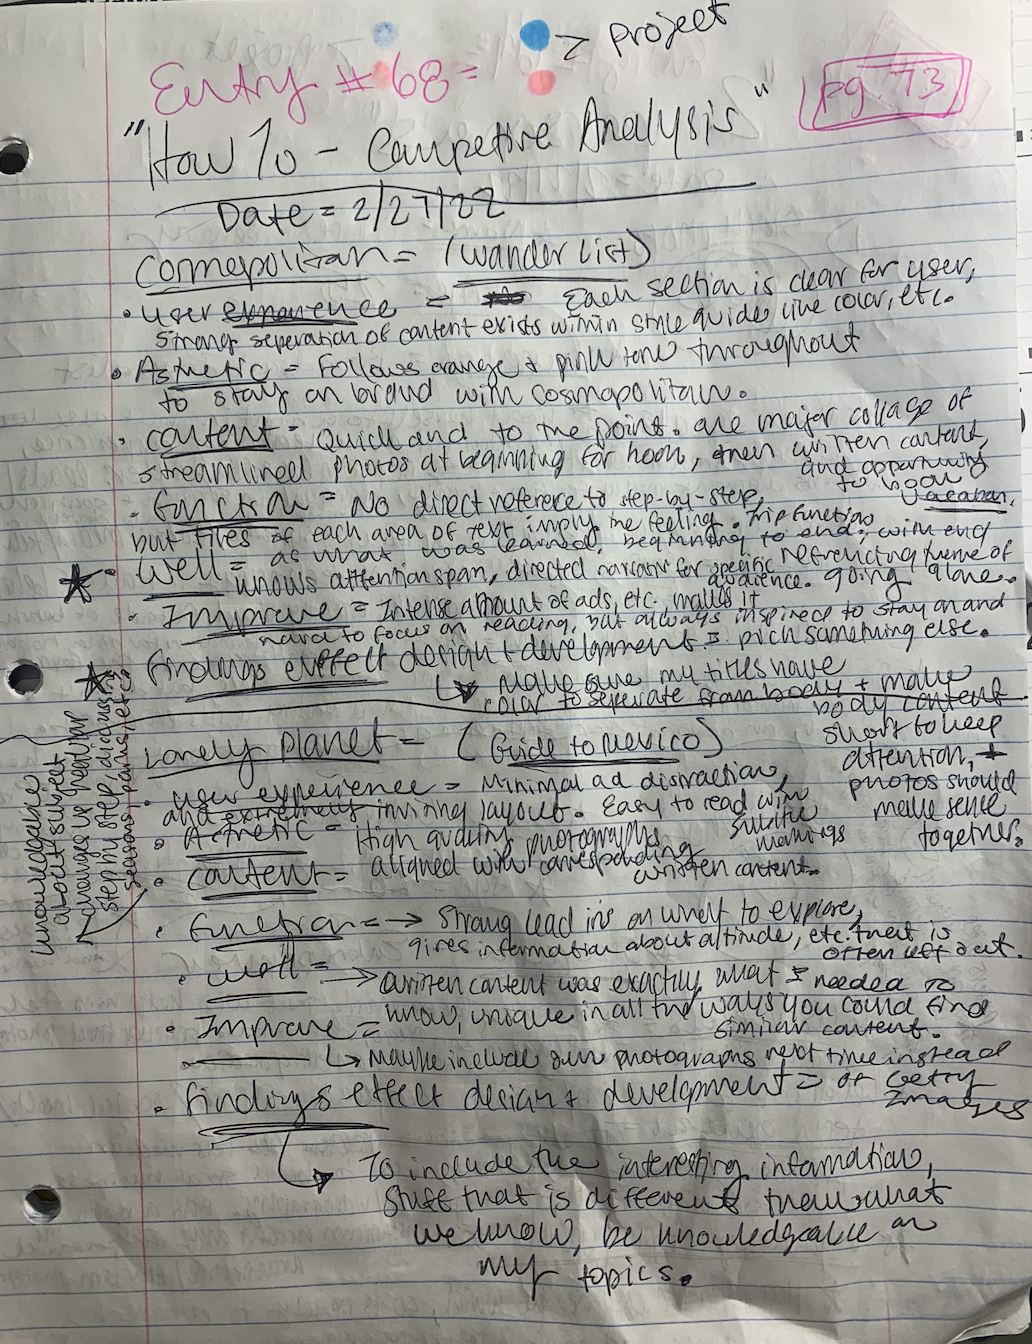 > project
Entry #68 =
pg. 73
"How To - Competive Analysis"
Date = 2/27/22
Cosmepolitan = (wander list)
• user experience = Each section is clear for user,
strong seperation of content exists within style guide like color, etc.
• Asthetic = Follows orange + pink tone throughout
to stay on brand with Cosmopolitan.
• content - Quick and to the point. one major collage of
streamlined photos at beginning for hook, then written content,
and opportunity
to book
vacation.
• function = No direct reference to step-by-step,
but titles of each area of text imply the feeling. Trip function
as what was learned, beginning to end, with end
• Well = knows attention span, directed narrative for specific refrencing theme of
audience. going alone.
• Improve = Intense amount of ads, etc. makes it
hard to focus on reading, but always inspired to stay on and
pick something else.
findings effect design + development =
↳ Make sure my titles have
color to seperate from body + make
body content
short to keep
attention, +
photos should
make sense
together.
Lonely planet = (Guide to Mexico)
• user experience = Minimal ad distraction,
and extremely inviting layout. Easy to read with
subtitle
markings
• Asthetic - High quality photographs
aligned with corresponding
written content.
• content =
knowledgable
about subject
changes up
step by step, discussing
seasons, parks, etc.
• function = → Strong lead ins on what to explore,
gives information about altitude, etc. that is
often left out.
• well = → written content was exactly what I needed to
know, unique in all the ways you could find
similar content.
• Improve =
↳ Maybe include own photographs next time instead
of Getty
Images
• findings effect design + development =
↳ To include the interesting information,
stuff that is different then what
we know, be knowledgable on
my topics.